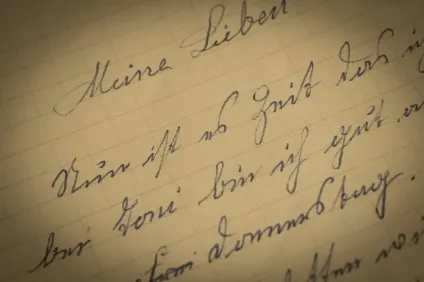 Meine Lieben
Nun ist es Zeit das ic
bei Toni bin ich gut a
Donnerstag.